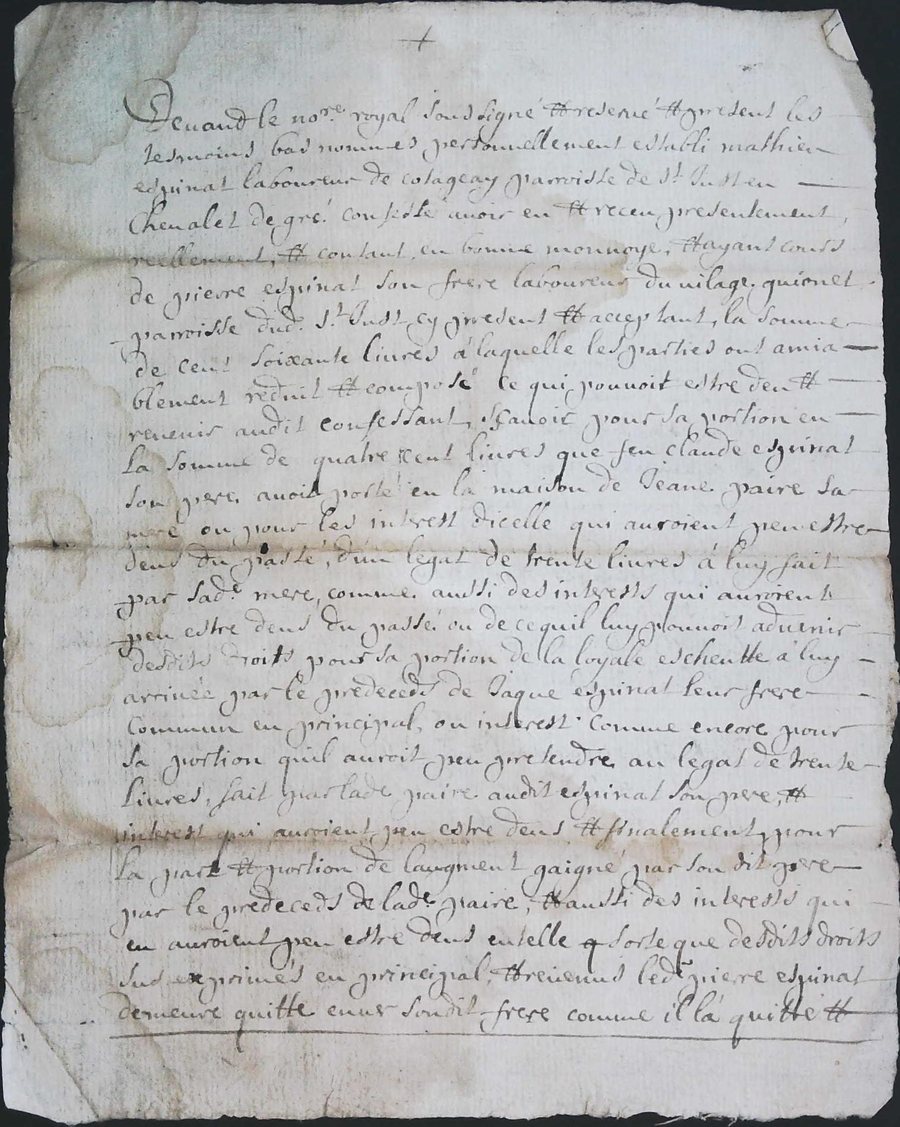 +
Devand le no.re royal soussigné et reservé et present les
tesmoins bas nommes personnellement establi mathieu
espinat laboureur de cotageay parroisse de s.t Just en
Chevalet de gré confesse avoir eu et receu presentement,
reellement, et contant, en bonne monnoye, et ayant cours
de pierre espinat son frere laboureur du vilage quionet
parroisse dud. s.t Just cy present et acceptant, la somme
de cent soixante livres à laquelle les parties ont amia
blement reduit et composé ce qui pouvoit estre deu et
revenir audit confessant, sçavoir pour sa portion en
la somme de quatre cent livres que feu claude espinat
son pere avoit porté en la maison de Jeane paire sa
mere ou pour les interest dicelle qui auroient peu estre
deus du passé, d'un legat de trente livres à luy fait
par sad.e mere, comme aussi des interests qui auroient
peu estre deus du passé ou de ce quil luy pouvoit advenir
desdits droits pour sa portion de la loyale escheutte à luy
arrivée par le predeceds de Jaque espinat leur frere
commun en principal, ou interest comme encore pour
sa portion quil auroit peu pretendre au legat de trente
livres, fait par lade paire audit espinat son pere, et
interest qui auroient peu estre deus et finalement, pour
la part et portion de laugment gaigné par son dit pere
par le predeceds de lade paire, et aussi des interests qui
en auroient peu estre deus en telle sorte que desdits droits
sus exprimés en principal, et revenus led. pierre espinat
demeure quitte enver sondit frere comme il là quitté et